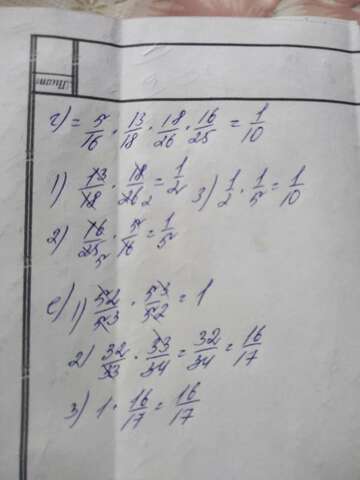 Лист
г) = 5/16 · 13/18 · 18/26 · 16/25 = 1/10
1) 13/18 · 18/26 2 = 1/2 3) 1/2 · 1/5 = 1/10
2) 16/25 5 · 5/16 = 1/5
е) 1) 52/53 · 53/52 = 1
2) 32/33 · 33/34 = 32/34 = 16/17
3) 1 · 16/17 = 16/17